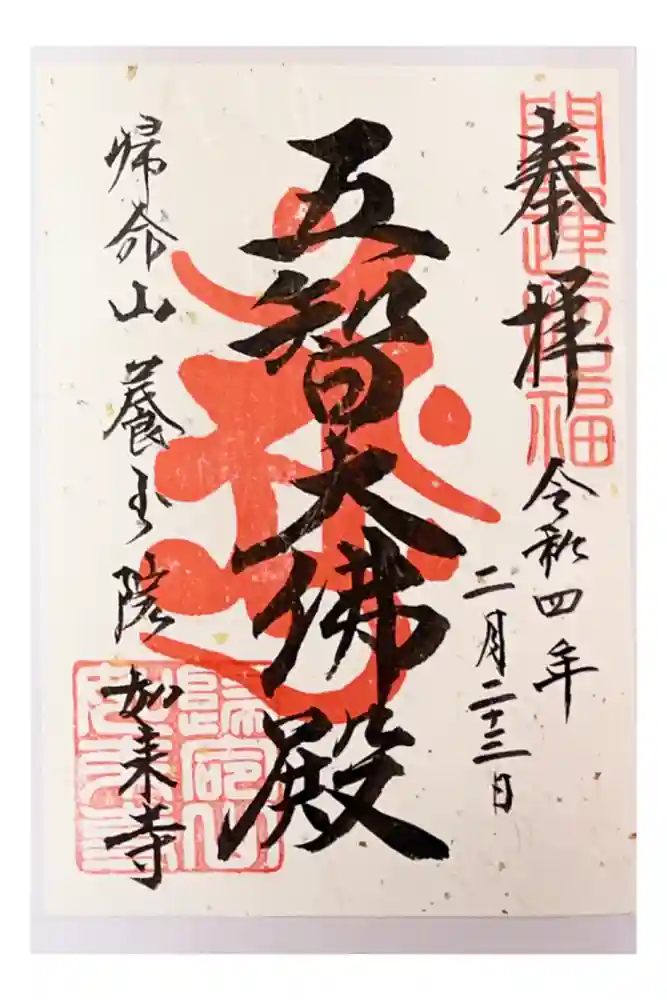 奉拝
令和四年
二月二十三日
五智大佛殿
帰命山 養玉院 如来寺